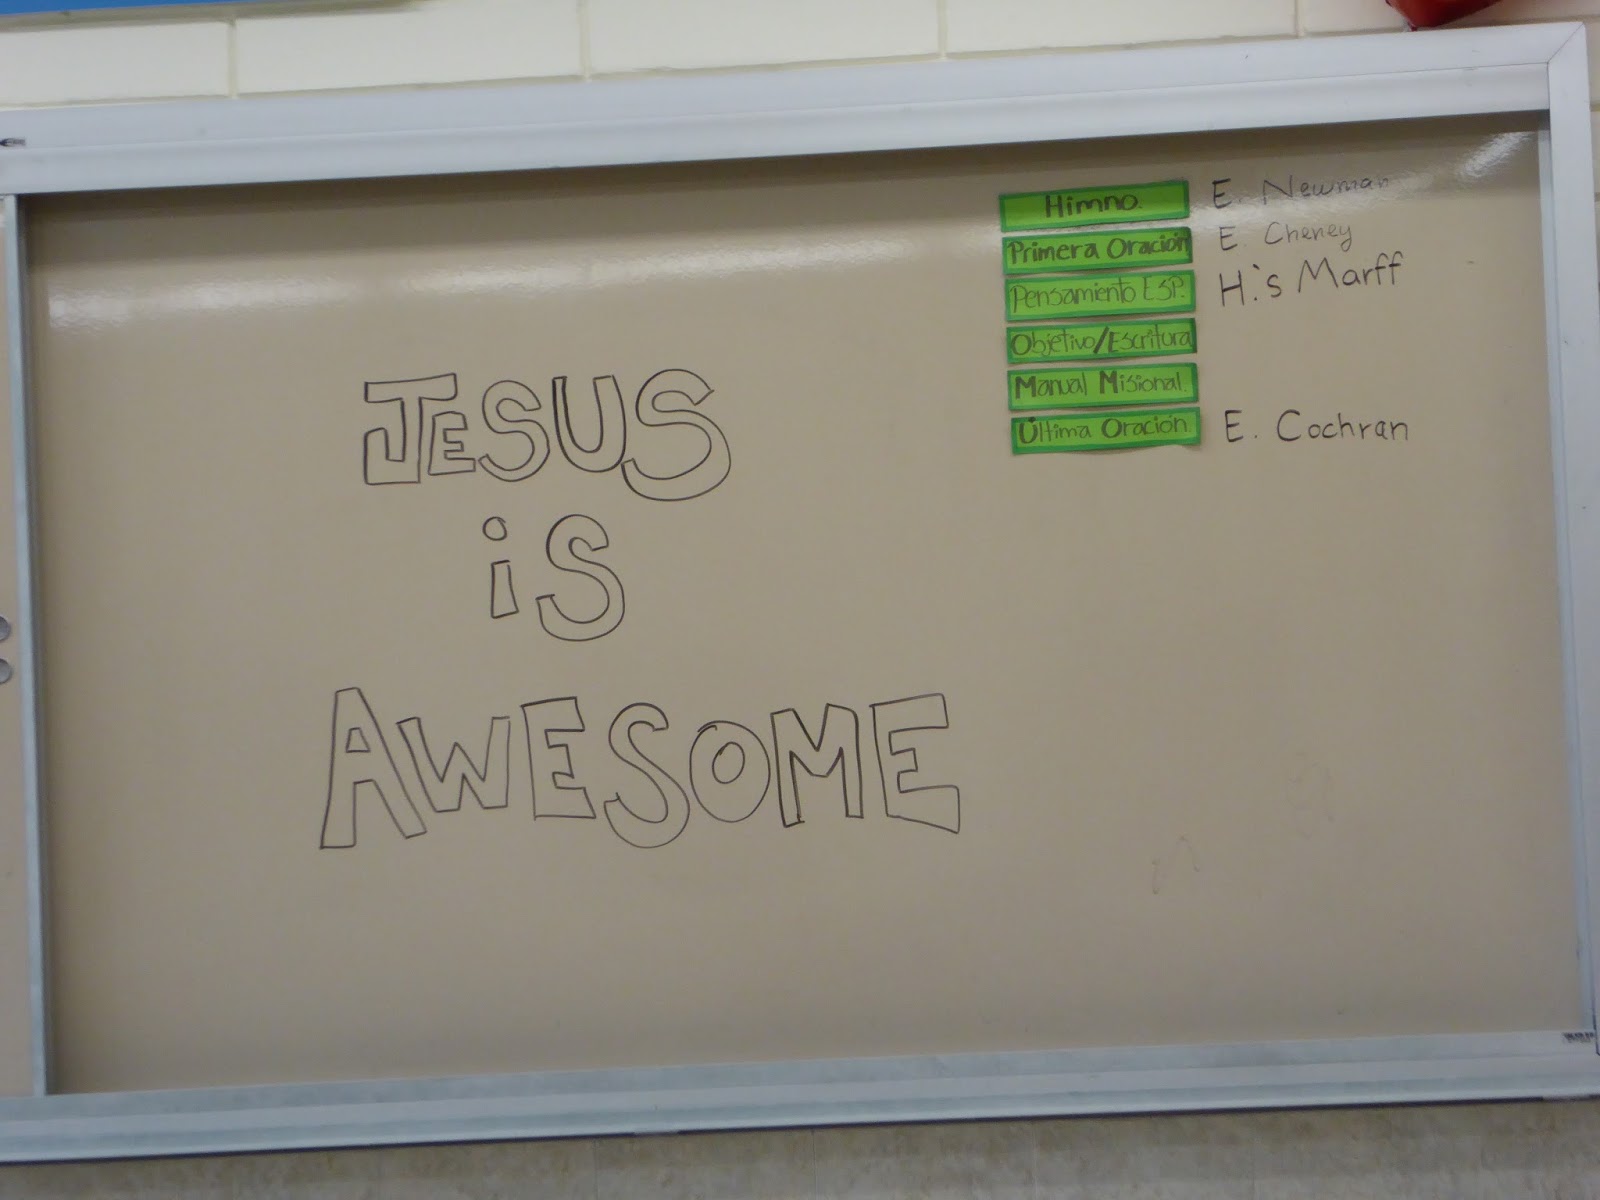 JESUS
iS
AWESOME
Himno. E. Newman
Primera Oración E. Cheney
Pensamiento ESP. H:s Marff
Objetivo/Escritura
Manual Misional.
Última Oración E. Cochran